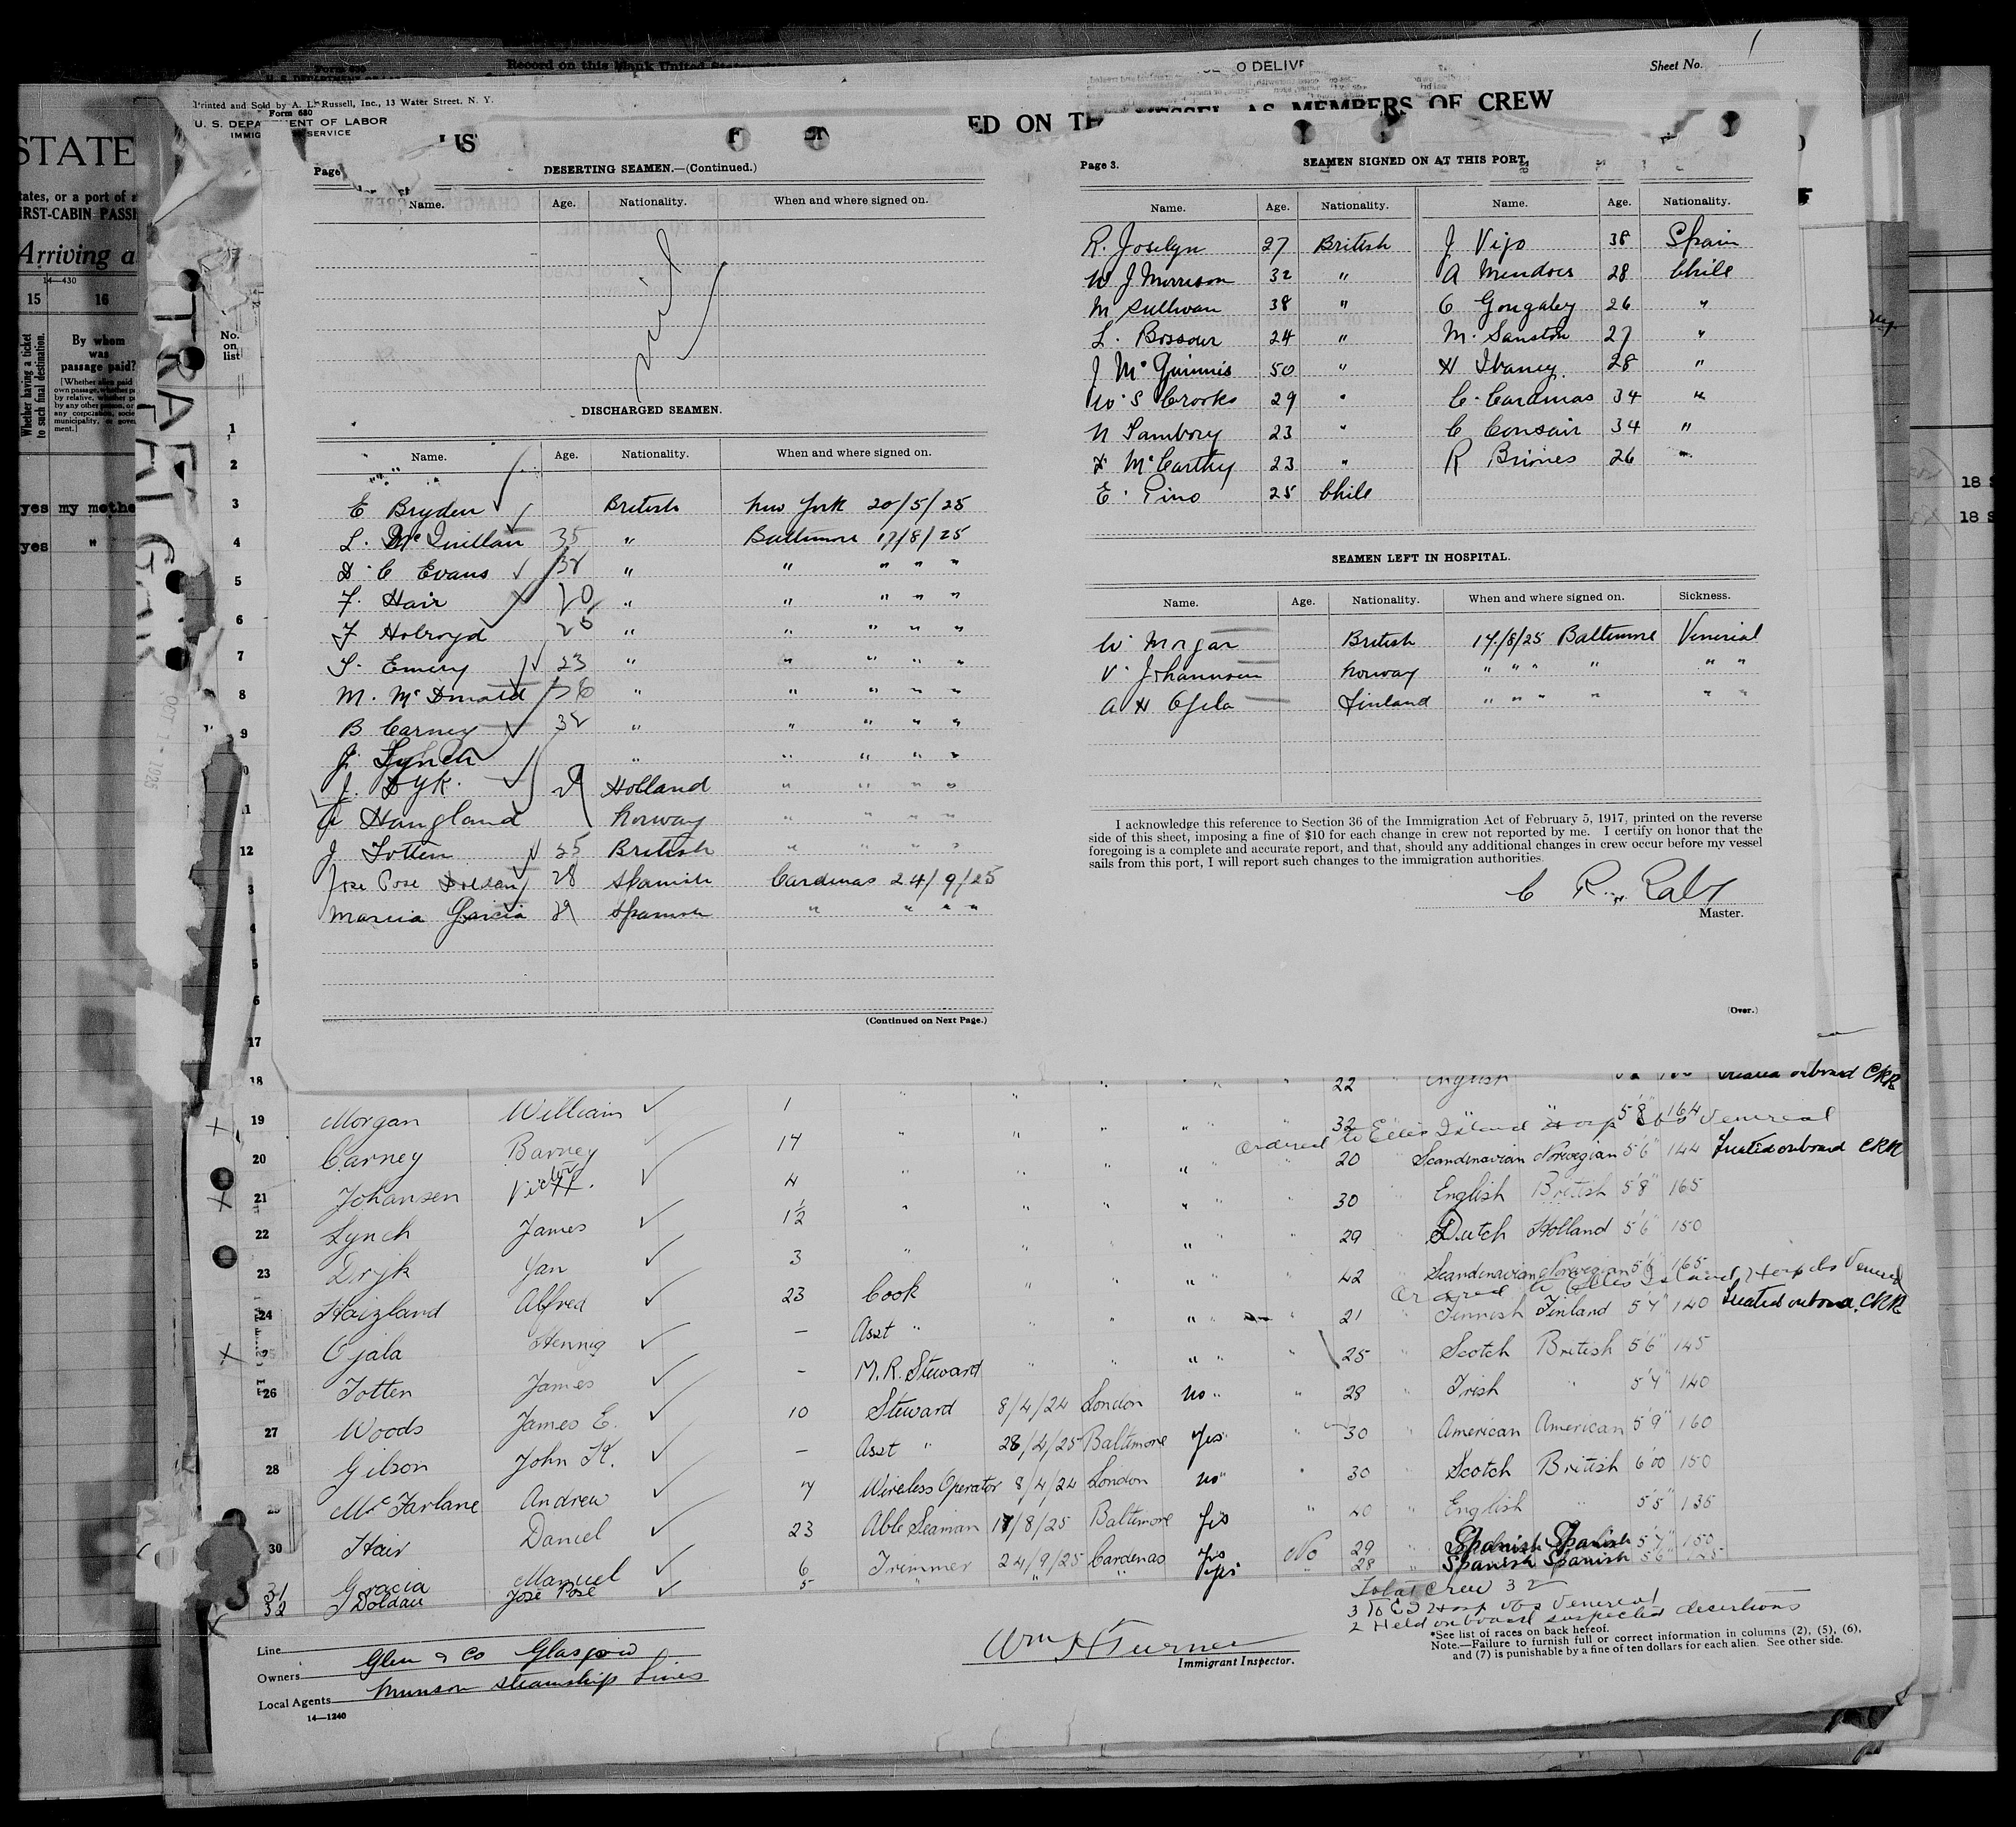 Record on this blank United States
Printed and Sold by A. L. Russell, Inc., 13 Water Street, N. Y.
Form 680
U. S. DEPA ENT OF LABOR
IMMIG SERVICE
O DELIV
Sheet No. 1
US ED ON TH VESSEL AS MEMBERS OF CREW
STATE
tates, or a port of a
IRST-CABIN PASSE
Arriving a
14—430
15 16
Whether having a ticket to such final destination.
By whom was passage paid?
yes my mothe
yes "
TRAFALGAR
OCT 1 - 1925
No. on list
Page
DESERTING SEAMEN.—(Continued.)
Name. Age. Nationality. When and where signed on.
nil
DISCHARGED SEAMEN.
Name. Age. Nationality. When and where signed on.
E Bryden British New York 20/5/25
L. McQuillan 35 " Baltimore 17/8/25
D. C Evans 32 " " " " "
F. Hair 20 " " " " "
F Holroyd 25 " " " " "
S. Emery 23 " " " " "
M. McDonald 26 " " " " "
B Carney 32 " " " " "
J. Lynch " " " " "
J. Dyk. 29 Holland " " " "
A Haugland Norway " " " "
J Totten 25 British " " " "
Jose Pose Doldan 28 Spanish Cardenas 24/9/25
Marcia Garcia 29 Spanish " " " "
(Continued on Next Page.)
Page 3.
SEAMEN SIGNED ON AT THIS PORT.
Name. Age. Nationality. Name. Age. Nationality.
R. Joselyn 27 British J Vijo 38 Spain
W J Morrison 32 " A Mendoes 28 Chile
M Sullivan 38 " C Gongaley 26 "
L. Bossour 24 " M. Sanston 27 "
J McGuinnis 50 " H Ibaney 28 "
W. S Crooks 29 " C. Cardinas 34 "
N Sambory 23 " C Consair 34 "
F McCarthy 23 " R Briones 26 "
E. Pino 25 Chile
SEAMEN LEFT IN HOSPITAL.
Name. Age. Nationality. When and where signed on. Sickness.
W Morgan British 17/8/25 Baltimore Venerial
V. Johannsen Norway " " " " " "
A H Ojela Finland " " " " " "
I acknowledge this reference to Section 36 of the Immigration Act of February 5, 1917, printed on the reverse
side of this sheet, imposing a fine of $10 for each change in crew not reported by me. I certify on honor that the
foregoing is a complete and accurate report, and that, should any additional changes in crew occur before my vessel
sails from this port, I will report such changes to the immigration authorities.
C R. Raby
Master.
(Over.)
1
2
3
4
5
6
7
8
9
12
17
18 22 English Treated onboard CRR
19 Morgan William 1 " " " " 32 " " 5'8" 164
Ordered to Ellis Island Hosp Venereal
20 Carney Barney 14 " " " "
21 Johansen Victor 4 " " " " 20 Scandinavian Norwegian 5'6" 144 Treated onboard CRR
22 Lynch James 1½ " " " " 30 English British 5'8" 165
23 Dryk Jan 3 " " " 29 Dutch Holland 5'6" 150
24 Haizland Alfred 23 Cook " " " " 42 Scandinavian Norwegian 5'6" 165
Ordered to Ellis Island Hosp Venereal
25 Ojala Hennig — Asst " " " " 21 Finnish Finland 5'7" 140 Treated onboard. CRR
26 Totten James — M.R. Steward " " " " 25 Scotch British 5'6" 145
27 Woods James E. 10 Steward 8/4/24 London no " " 28 " Irish " 5'7" 140
28 Gilson John K. — Asst " 28/4/25 Baltimore Yes " 30 American American 5'9" 160
29 McFarlane Andrew 7 Wireless Operator 8/4/24 London no " 30 " Scotch British 6'00 150
30 Hair Daniel 23 Able Seaman 17/8/25 Baltimore Yes " 20 " English " 5'5" 135
31 Gracia Manuel 6 Trimmer 24/9/25 Cardenas Yes No 29 Spanish Spanish 5'7" 150
32 Doldau José Pose 5 " " " Yes " 28 " Spanish Spanish 5'6" 125
Total crew 32
3 To EI Hosp obs Venereal
2 Held onboard suspected desertions
Line
Owners Glen & Co Glasgow
Local Agents Munson Steamship Lines
14—1240
Wm H Turner
Immigrant Inspector.
*See list of races on back hereof.
Note.—Failure to furnish full or correct information in columns (2), (5), (6),
and (7) is punishable by a fine of ten dollars for each alien. See other side.
18
18